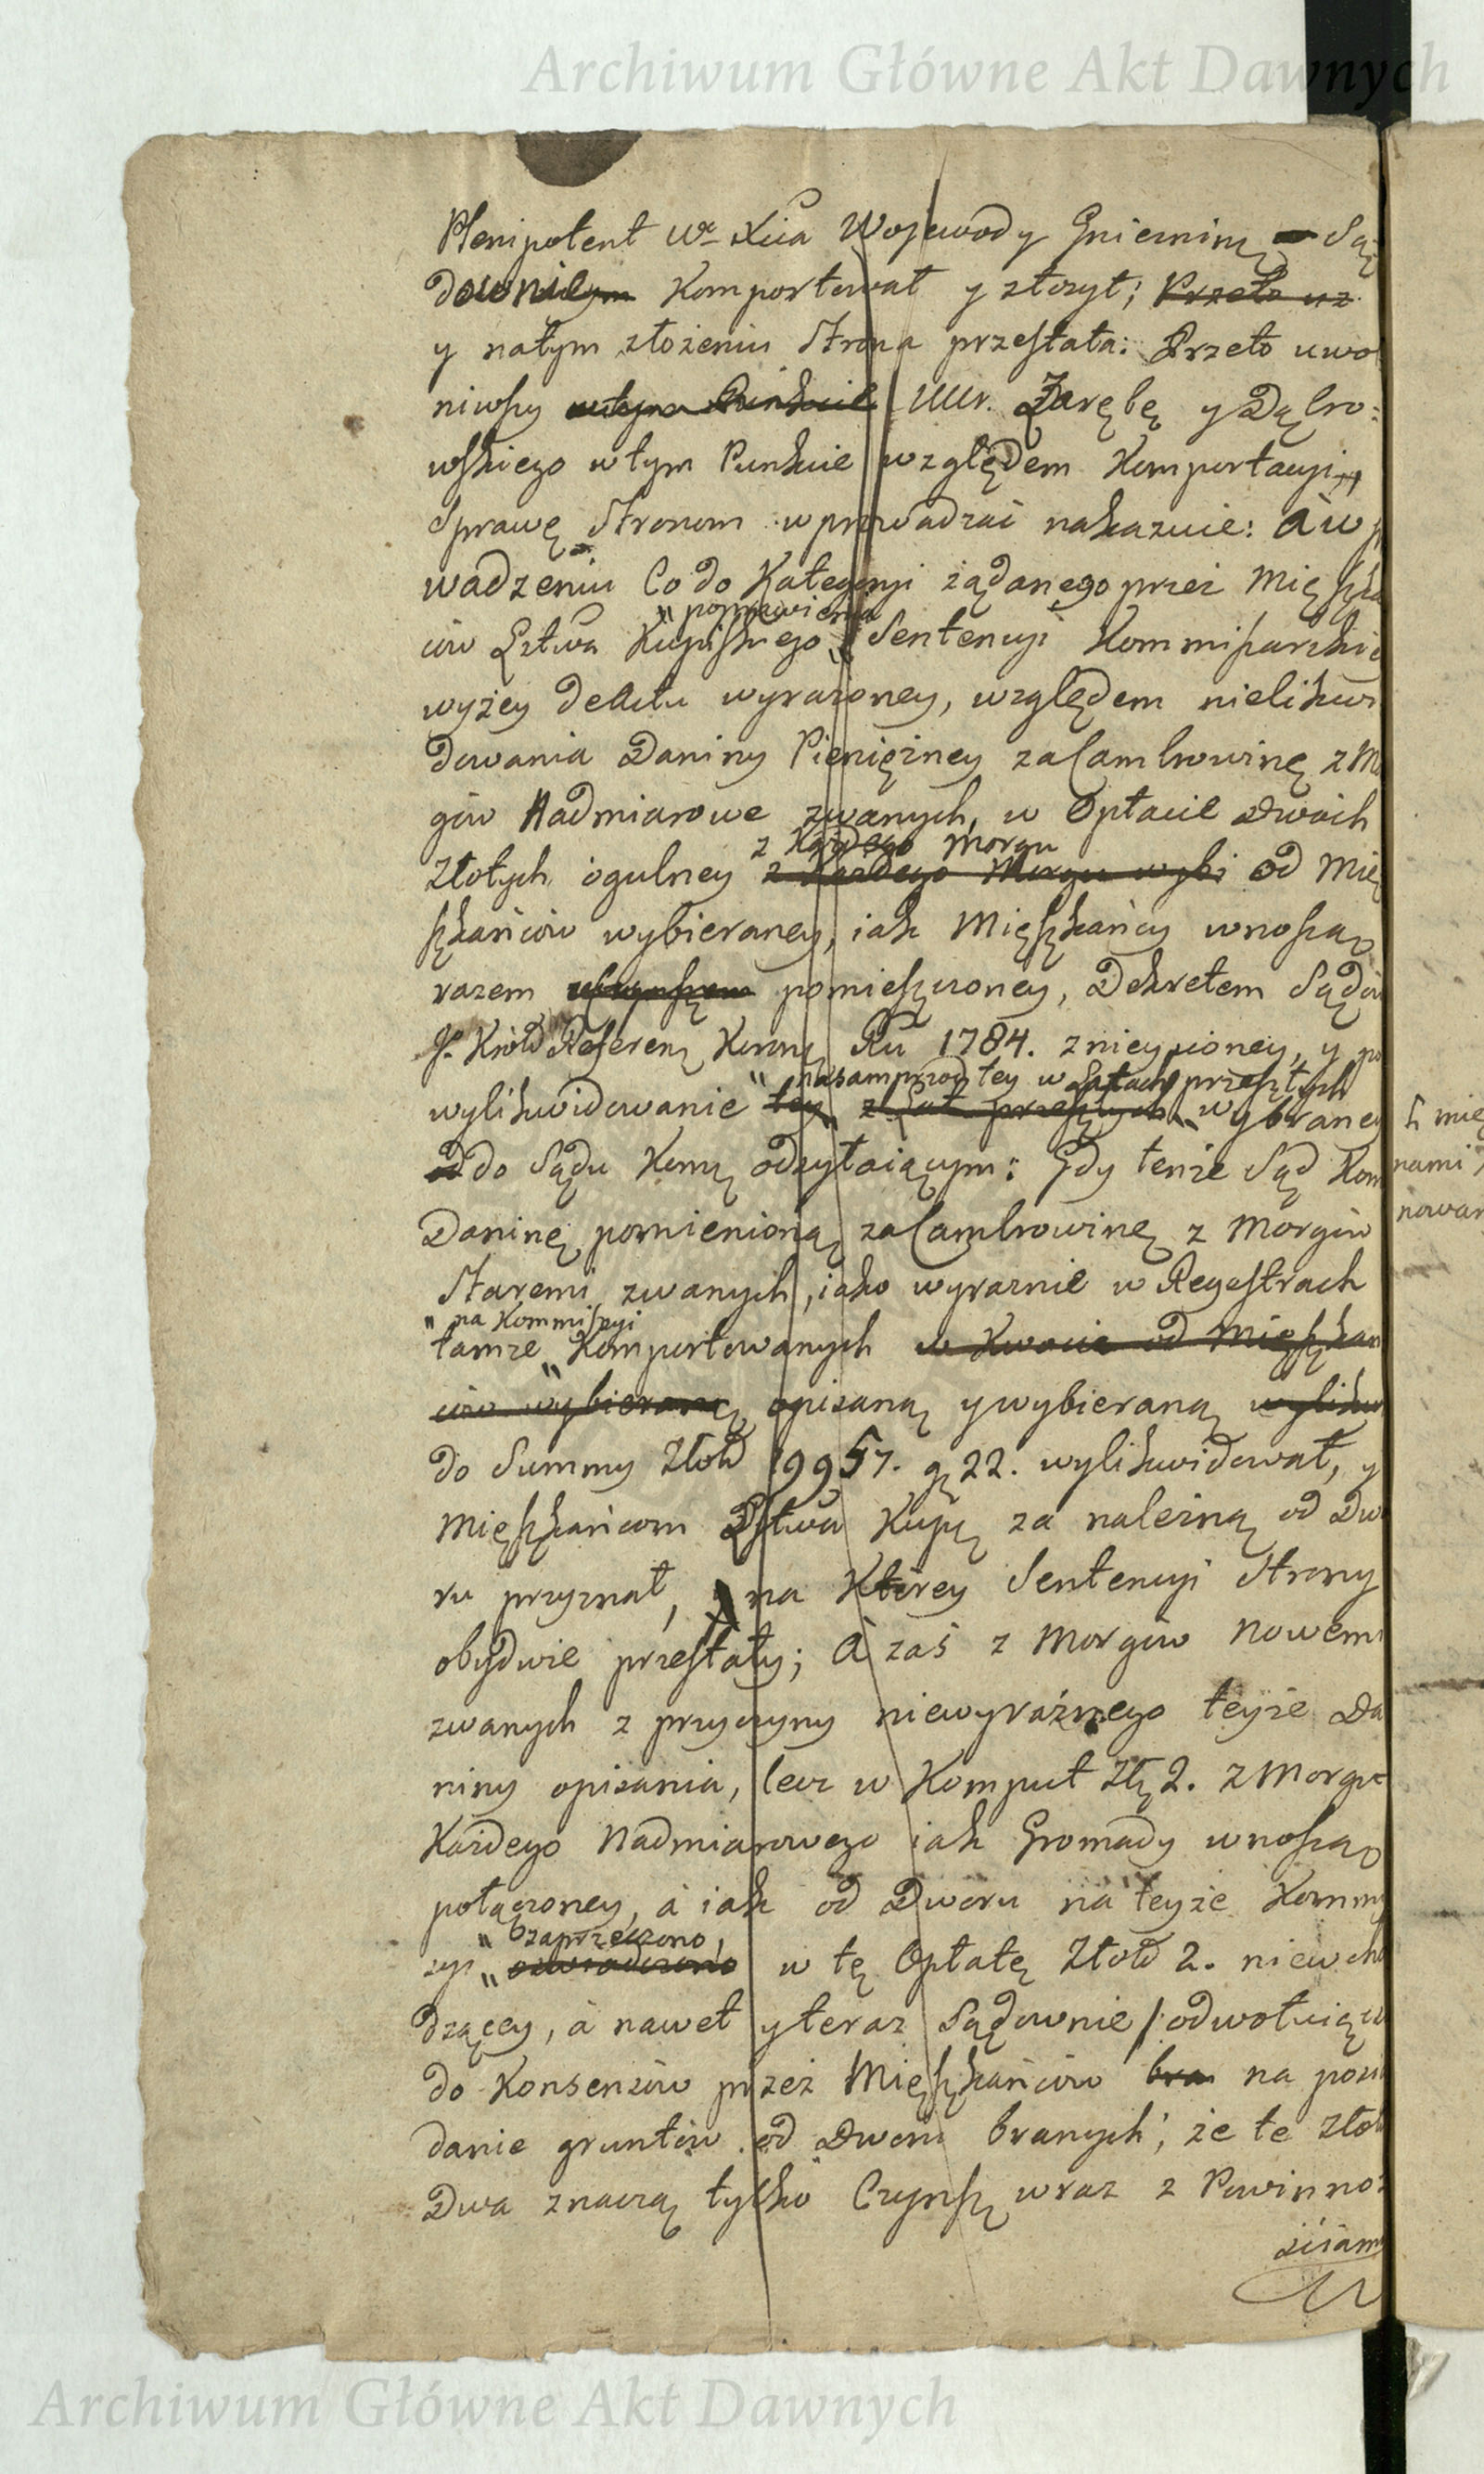 Archiwum Główne Akt Dawnych
Plenipotent Wo Xcia Wojewody Gnieznin Są
downie Komportował y złożył; Przeto uz
y natym złożeniu Strona przestała: Przeto uwol
niwszy wtym Punkcie Wur. Zarębę y Dąbro:
wskiego wtym Punkcie względem Komportacyi,
Sprawę Stronom wprowadzać nakazuie: à w p
wadzeniu Co do Kategoryi żądanego przez Mięszka
" poprawienia
ców Lstwa Kupiskiego " Sentencyi Kommissarskie
wyżey dekretu wyrażoney, względem nielikwi
dowania Daniny Pieniężney za Cambrowinę z Mo
gów Nadmiarowe zwanych, w Opłacie dwoch
z Każdego Morgu
Złotych ogulney z Każdego Morgu wybi od Mię
szkańców wybieraney, iak Mięszkańcy wnoszą
razem pomieszczoney, Dekretem Sądów
J. Król Referen Koron Ru 1784. zniesioney, y na
" nasamprzod tey w Latach przeszłych
wylikwidowanie tey z Lat przeszłych " wybraney
do Sądu Kom odsyłaiącym: Gdy tenże Sąd Kom
Daninę pomienioną za Cambrowinę z Morgów
Staremi zwanych, iako wyraznie w Regestrach
" na Kommissyi
tamże " Komportowanych w Kwocie od Mięszkań
ców wybieraną opisaną y wybieraną wylikw
do Summy Złotch 19957. g 22. wylikwidował, y
Mięszkańcom Lstwa Kupi za należną od Dwo
ru przyznał, na Którey Sentencyi Strony
obydwie przestały; à zaś z Morgów Nowemi
zwanych z przyczyny niewyraźnego teyże Da
niny opisania, lecz w Komput Zł 2. z Morgu
Każdego Nadmiarowego iak Gromady wnoszą
połączoney, à iak od Dworu na teyże Kommi
" zaprzeczono,
syi " oświadczono w tę Opłatę Złoch 2. niewcho
dzącey, à nawet y teraz Sądownie /: odwołuiąc
do Konsensów przez Mięszkańców bra na posia
danie gruntów od Dworu branych; że te Złot
Dwa znaczą tylko Czynsz wraz z Powinno:
ściam
ń mię
nami
nowan
Archiwum Główne Akt Dawnych